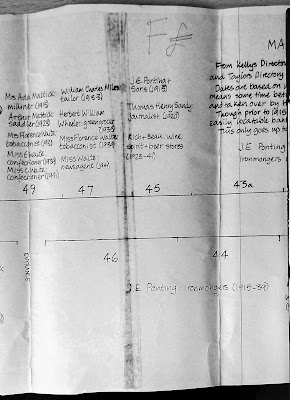 F
MA
From Kellys Director
and Taylor's Directory
Dates are based on w
means some time betw
and taken over by t
Though prior to 1915
easily locatable bak
This only goes up to
Ms Ada Mattick
milliner (1915)
Arthur Mattick
saddler (1923)
Ms Florence Waite
tobacconist (1931)
Miss E Waite
confectioner (1935)
Miss C Waite
confectioner (1941)
49
William Charles Miles
tailor (1923)
Herbert William
Wheeler greengrocer
(1935)
Miss Florence Waite
tobacconist (1939)
Miss Waite
newsagent (1941)
47
J.E. Ponting +
Sons (1915)
Thomas Henry Sandy
journalist (1920)
Rich + Beak, wine,
spirit + beer stores
(1923-41)
45
J.E. Ponting
Ironmongers
43a
ENTRANCE
46
44
J E Ponting Ironmongers (1915-39)